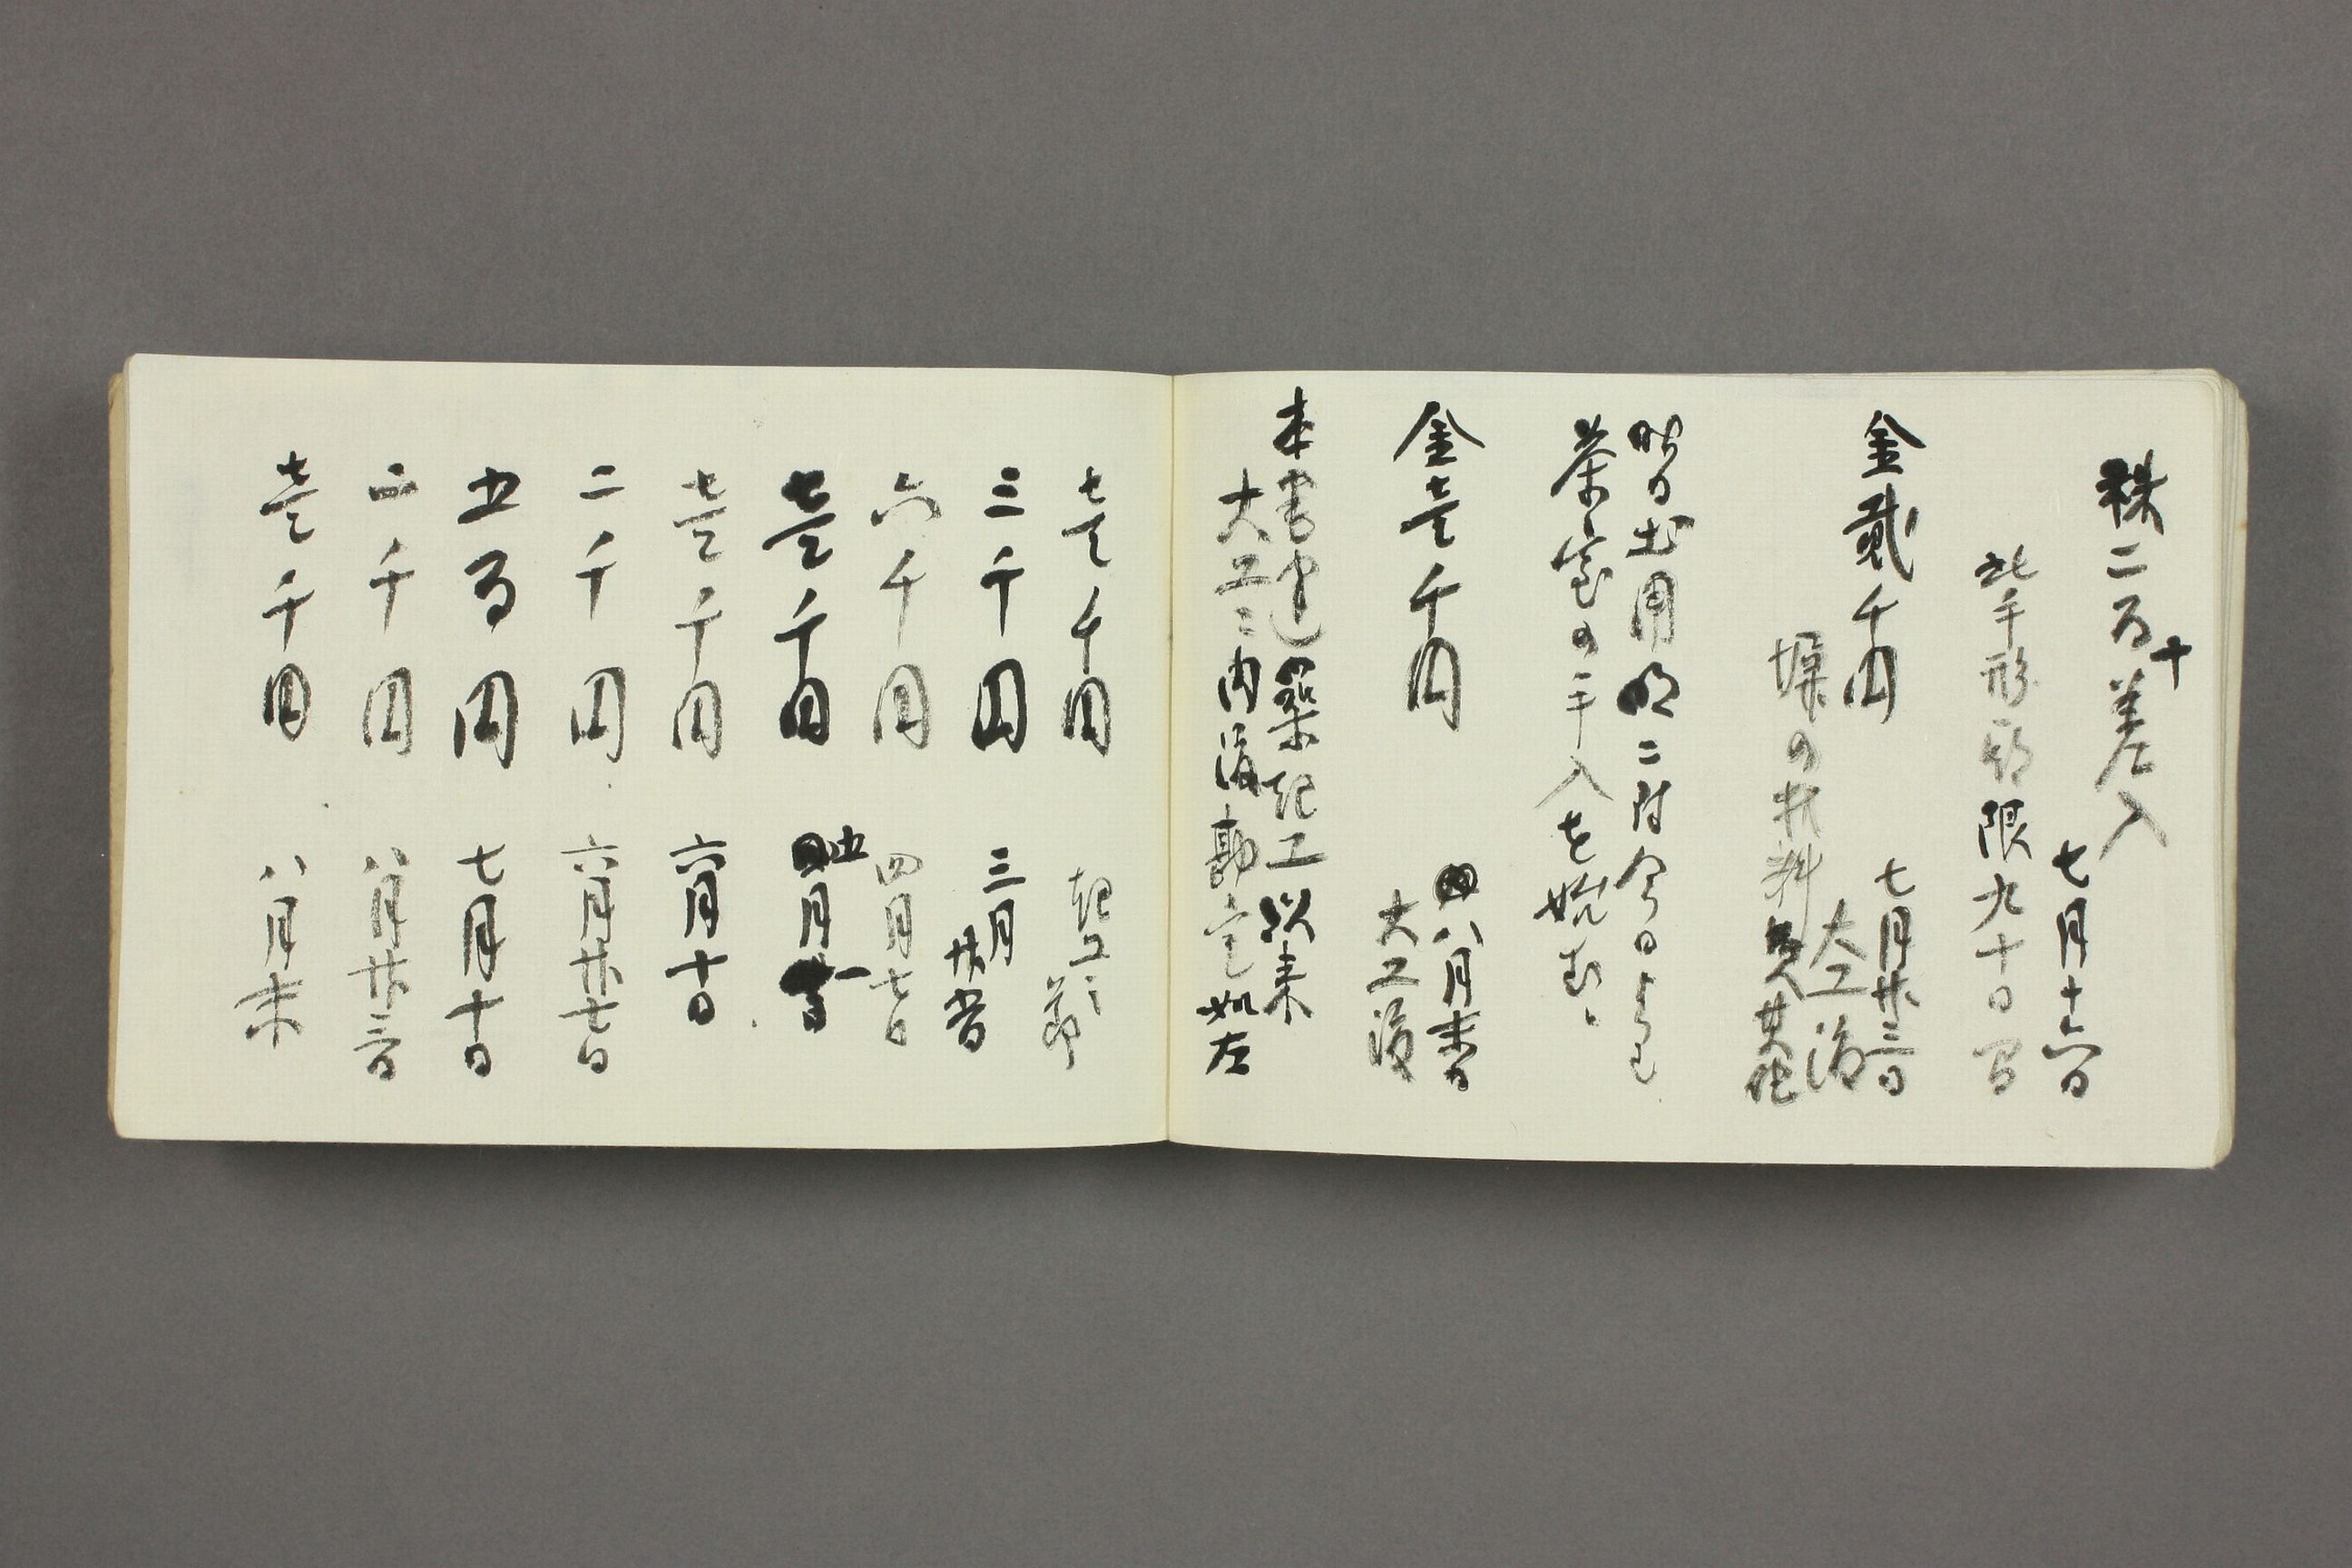 株二百十差入
七月十六日
此手形期限九十日
金貳千円
七月廿三日
大工渡
塀の材料其他
昨日出用
今日より
茶室の手入を始む、
金壱千円
八月末日
大工渡
本書中建築起工以来
大工ニ内渡勘定如左
壱千円 起工ニ節
三千円 三月廿一日
六千円 四月七日
壱千円 五月
壱千円 六月十日
二千円 六月廿七日
五百円 七月十日
二千円 八月廿三日
壱千円 八月末